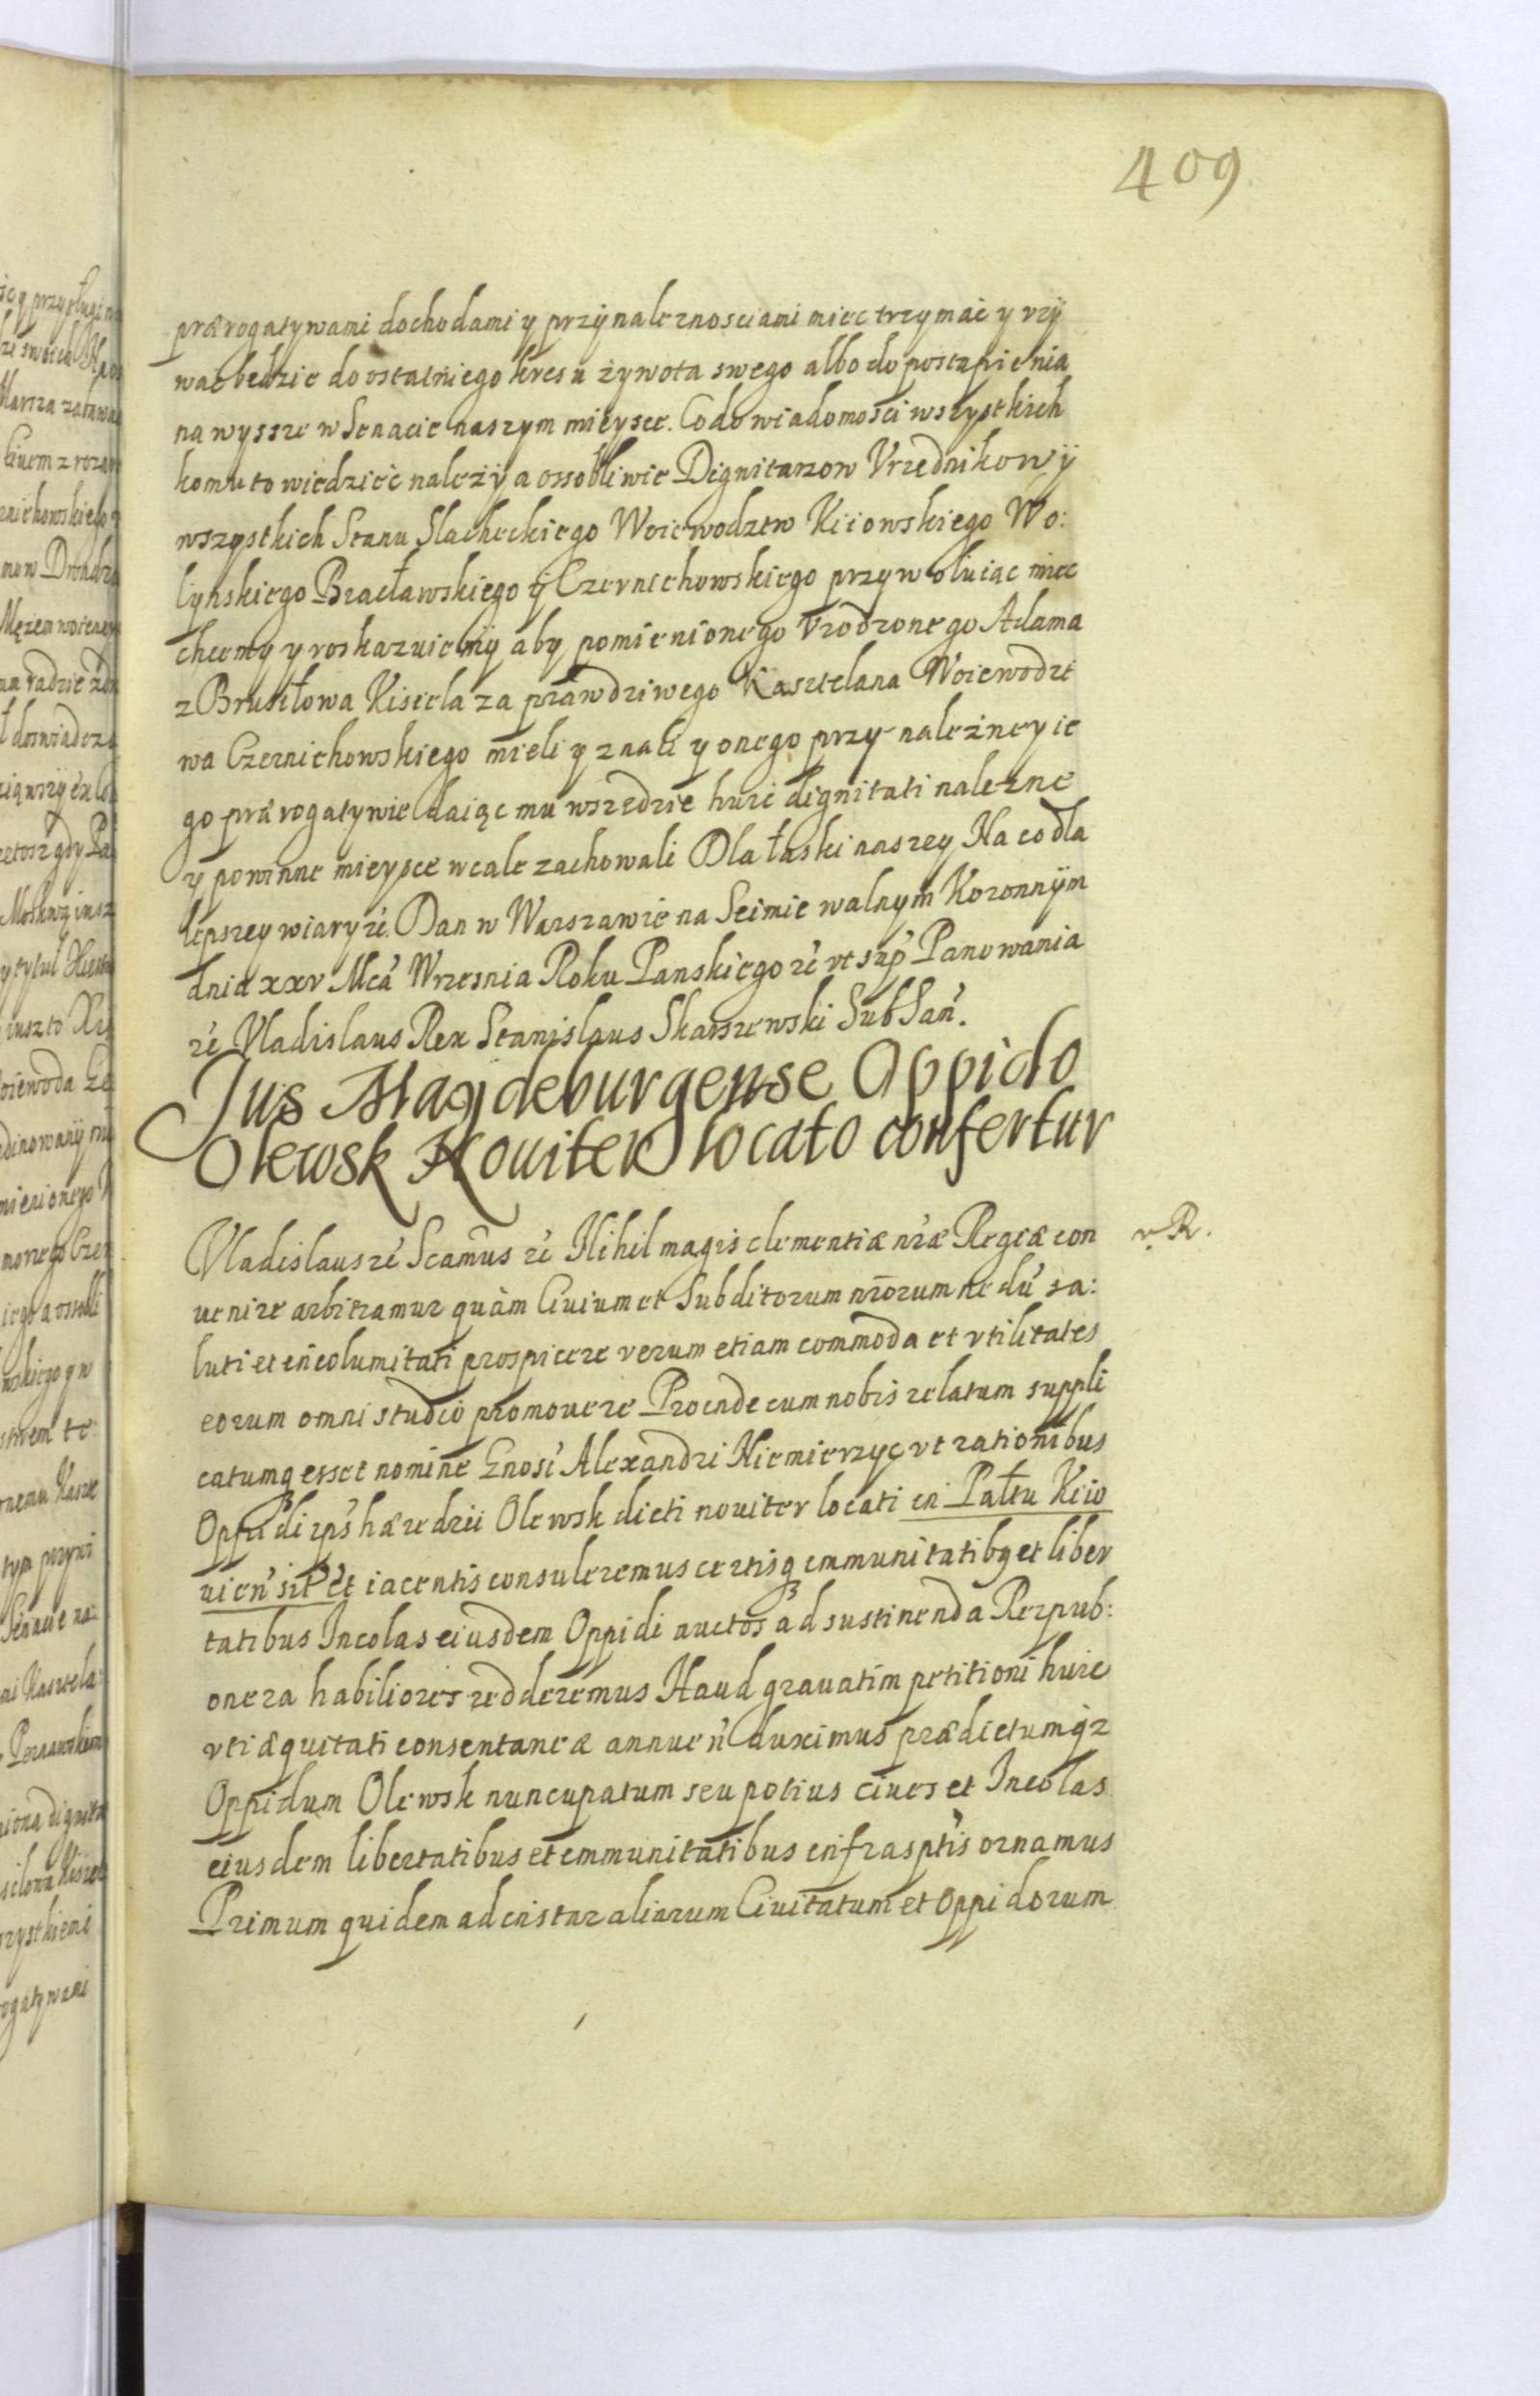 409
prærogatywami dochodami y przynaleznosciami miec trzymac y vzÿ
wac będzie do ostatniego kresu żywota swego albo do postąpienia
na wyssze w Senacie naszym mieysce. Co do wiadomosci wszystkich
komu to wiedzieć należÿ a ossobliwie Dignitarzow Vrzednikow ÿ
wszystkich Stanu Slacheckiego Woiewodztw Kiiowskiego Wo:
lynskiego Bracławskiego ÿ Czernichowskiego przywołuiąc miec
chcemy y roskazuiemÿ aby pomienionego Vrodzonego Adama
z Brusiłowa Kisiela za prawdziwego Kasztelana Woiewodzt
wa Czernichowskiego mieli y znali y onego przy należney ie
go prærogatywie daiąc mu wszędzie huic dignitati nalezne
y powinne mieysce wcale zachowali Dla łaski naszey Na co dla
lepszey wiary ż Dan w Warszawie na Seimie walnym Koronnÿm
dnia xxv Mcá Wrzesnia Roku Panskiego ż vt sup Panowania
ż Vladislaus Rex Stanislaus Skarszewski SubSań.
Jus Magdeburgense Oppido
Olewsk Nouiter locato confertur
Vladislaus ż Scamus ż Nihil magis clementiæ nræ Regeæ con
r. R.
uenire arbitramur quàm Ciuium et Subditorum nrorum ne dú sa:
luti et incolumitati prospicere verum etiam commoda et vtilitates
eorum omni studio promouere Proinde cum nobis relatum suppli
catumq esset nomine Gnosi Alexandri Niemierzyc vt rationibus
Oppidi ips hæredrii Olewsk dicti nouiter locati in Pałtu Kiio
uien sit et iacentis consuleremus certisq immunitatibq et liber
tatibus Incolas eiusdem Oppidi auctos ad sustinenda Reipub:
onera habiliores redderemus Haud grauatim petitioni huic
vti æquitati consentaneæ annueń duximus prædictumqz
Oppidum Olewsk nuncupatum seu potius ciues et Incolas
eiusdem libertatibus et immunitatibus infrasptis ornamus
Primum quidem ad instar aliarum Ciuitatum et Oppidorum